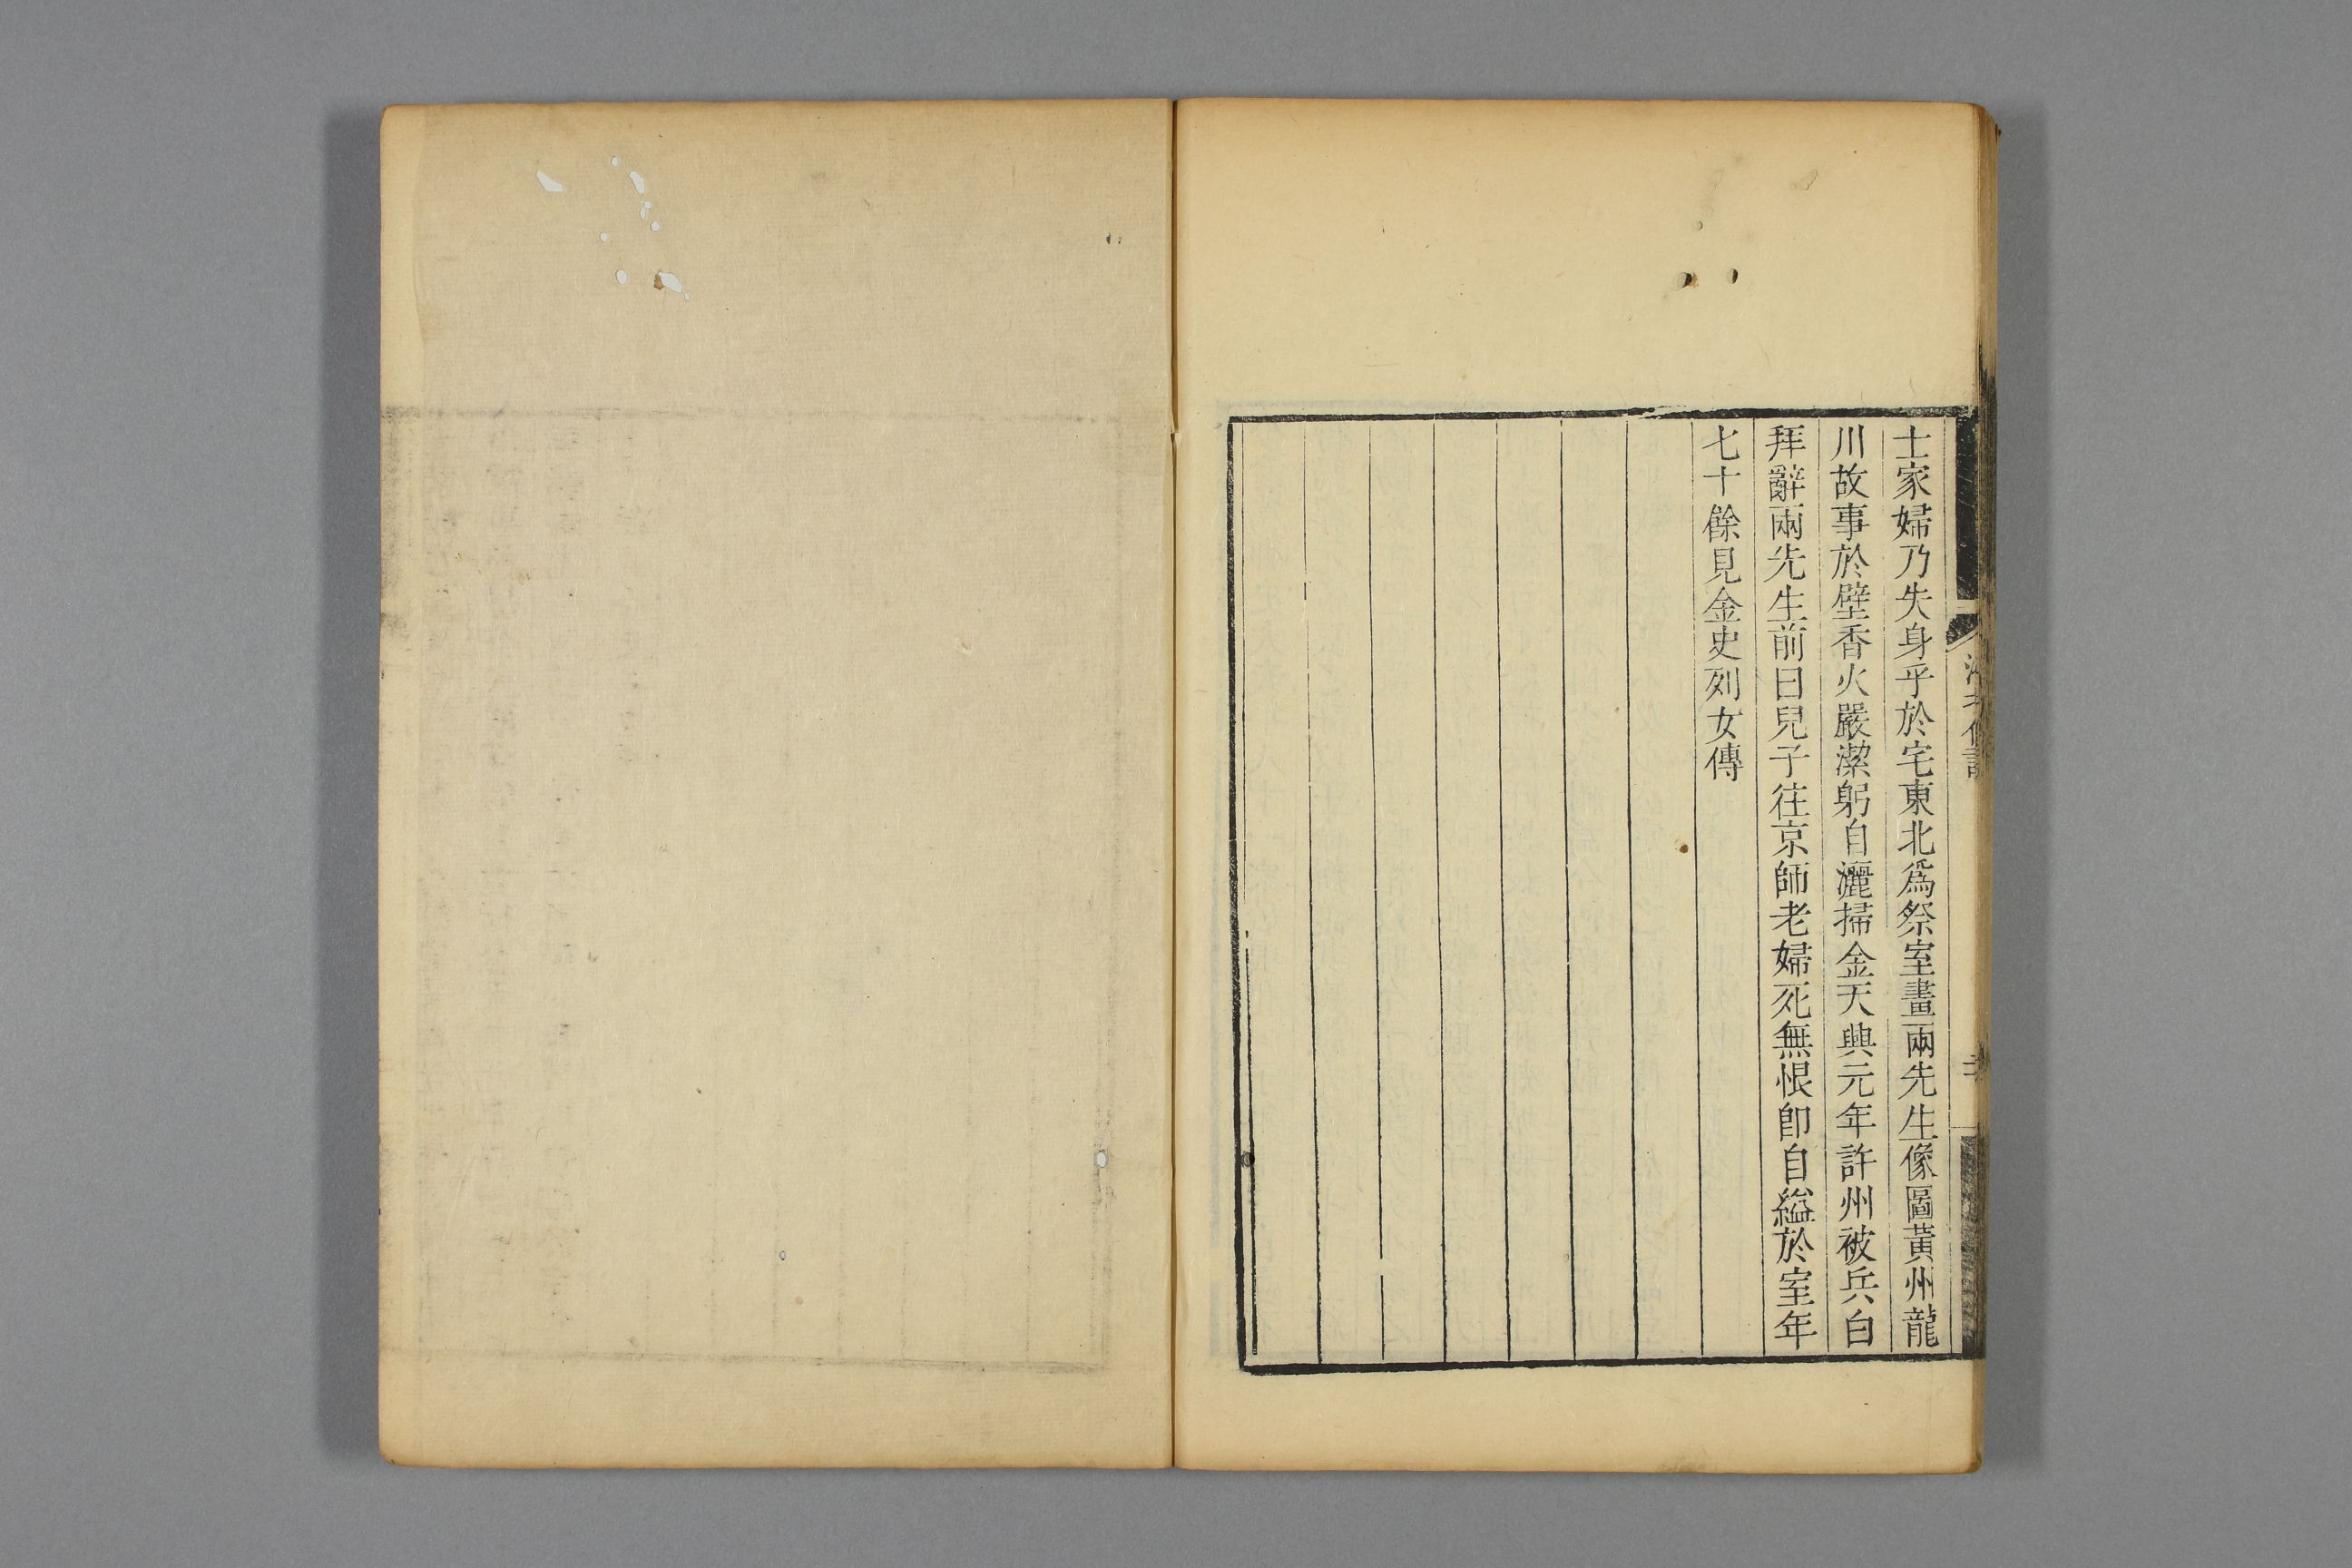 士家婦乃失身乎於宅東北爲祭室畫兩先生像圖黃州龍
川故事於壁香火嚴潔躬自灑掃金天興元年許州被兵白
拜辭兩先生前曰兒子往京師老婦死無恨卽自縊於室年
七十餘見金史列女傳